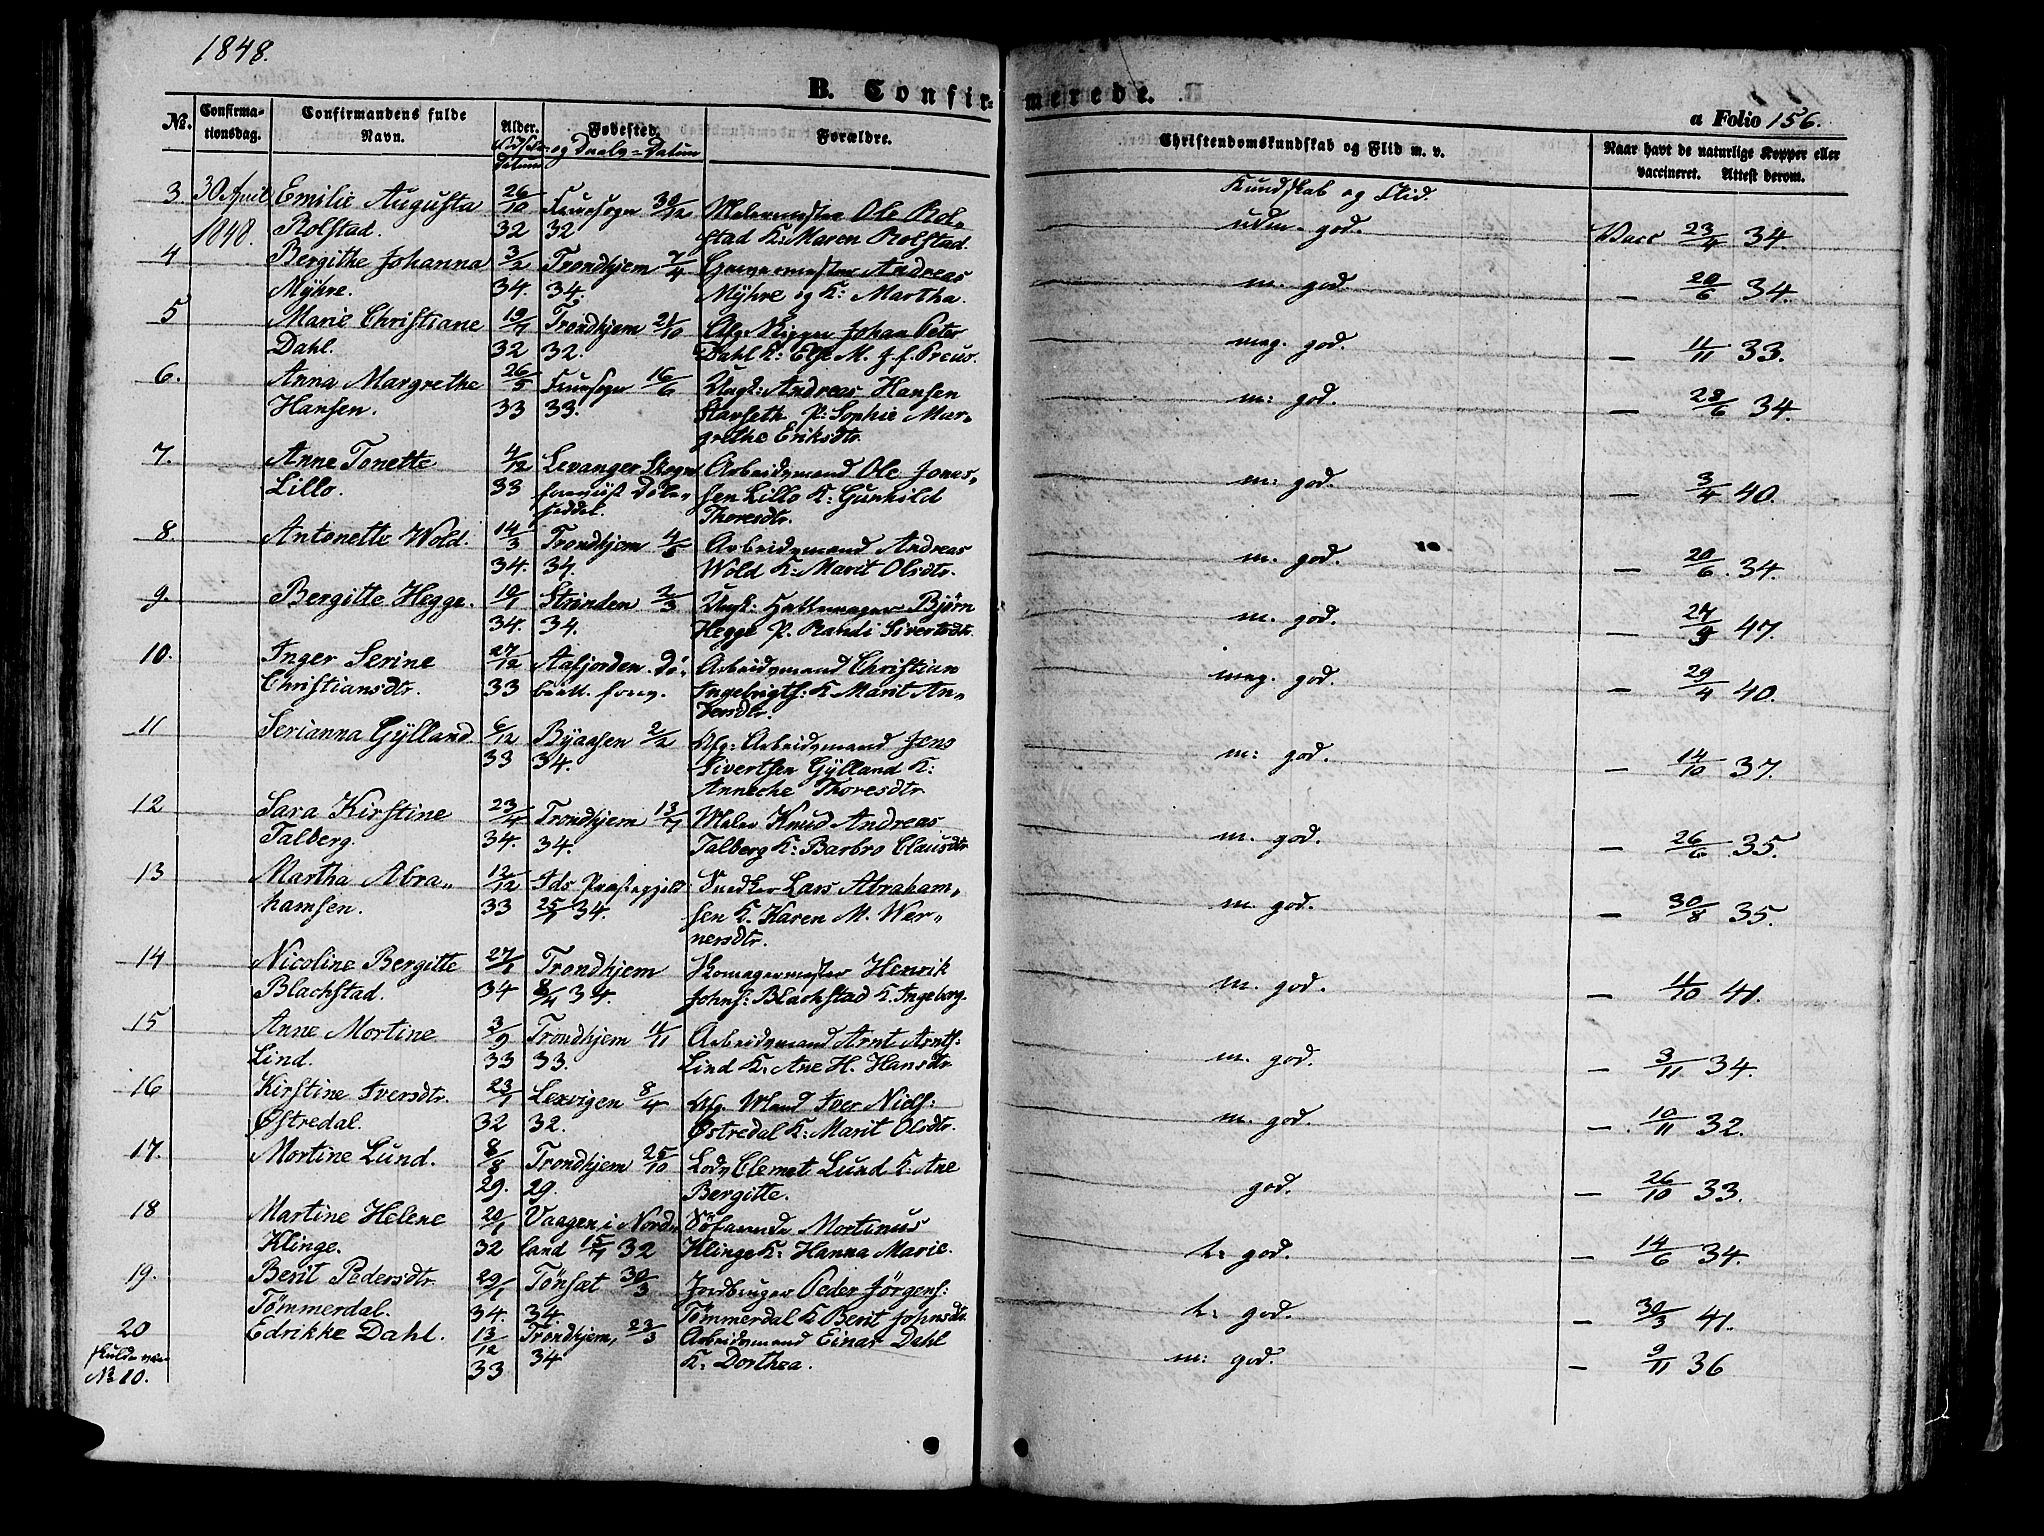 1848.
B. Confirmerede.
a Folio 156.
No. Confirmationsdag. Confirmandens fulde Navn. Alder. Fødested, Forældre. Christendomskundskab og Flid m. v. Naar havt de naturlige Kopper eller vaccineret. Attest derom.
og Daabs-Datum
Datum
Kundskab og Flid.
3 30 April Emilie Augusta 26/10 30/12 Malermester Ole Rol-
1848. Rolstad. 32 32 stad K: Maren Rolstad. udm. god. Vacc 23/4 34
4 Bergithe Johanna 3/2 Trondhjem 7/4 Andreas
Myhre. 34. 34. Myhre og K: Martha. m. god. — 20/6 34.
5 Marie Christiane 19/7 Trondhjem 21/10 Johan Peter
Dahl. 32 32. Dahl K: Else M. f. Preus. meg. god. — 11/11 33.
6. Anna Margrethe 26/5 16/6 Ungk: Andreas Hansen
Hansen. 33 33. Stavseth P: Sophie Mar-
grethe Eriksdtr. m: god. — 28/6 34.
7. Anne Tonette 4/12 Levanger Skogn Arbeidsmand Ole Jonas-
Lillo. 33 forevist Døbe- sen Lillo K: Gunhild
seddel. Thoresdtr. m: god. — 3/4 40.
8. Antonette Wold. 14/3 Trondhjem 4/5 Arbeidsmand Andreas
34. 34. Wold K: Marit Olsdtr. m. god. — 20/6. 34.
9. Bergitte Hegge. 19/1 Strinden 2/3 Ungk: Hattemager Bjørn
34. 34. Hegge P. Randi Sivertsdtr. m. god. — 27/9 47.
10. Inger Serine 27/12 Aafjorden. Dø- Arbeidsmand Christian
Christiansdtr. 33 Ingebrigts: K Marit An-
dersdtr. meg. god. — 29/4 40.
11 Serianna Gylland 6/12 Byaasen 2/2 Afg: Arbeidsmand Jens
33 34. Sivertsen Gylland K:
Anneche Thoresdtr m: god. — 14/10 37.
12 Sara Kirstine 23/4 Trondhjem 13/7 Maler Knud Andreas
Talberg. 34. 34. Talberg K: Barbro Clausdtr m. god. — 26/6 35.
13 Martha Abra- 12/12 Ids Præstegjeld Snedker Lars Abraham-
hamsen. 33 25/1 34. sen K. Karen M. Wer-
nersdtr. m. god. — 30/8 35.
14 Nicoline Bergitte 27/1 Trondhjem Skomagermester Henrik
Blachstad. 34 8/4 34. Johns: Blachstad K. Ingeborg. m. god. — 11/10 41.
15 Anne Mortine 3/9 Trondhjem 11/11 Arbeidsmand Arnt Arnts:
Lind. 33 33. Lind K: Ane H. Hansdtr m. god. — 3/11 34.
16 Kirstine Iversdtr. 23/1 Lexvigen 8/4 Afg. Iver Niels:
Østredal. 32 32. Østredal K: Marit Olsdtr. m. god. — 10/11 32.
17. Mortine Lund. 8/8 Trondhjem 25/10 Lods Clemet Lund K: Ane
29. 29. Bergitte. god. — 26/10 33.
18 Martine Helene 20/1 Vaagen i Nord- Søfarende Mortinus
Klinge. 32 land 15/7 32 Klinge K: Hanna Marie. t: god. — 14/6 34.
19. Berit Pedersdtr 29/1 Tønset 30/3 Peder Jørgens:
Tømmerdal. 34. 34. Tømmerdal K Berit Johnsdtr t: god. — 30/3 41.
20 Edrikke Dahl. 13/12 Trondhjem, 23/3 Arbeidsmand Einar Dahl
33 34 K: Dorthea. m: god. — 9/11 36
No 10.